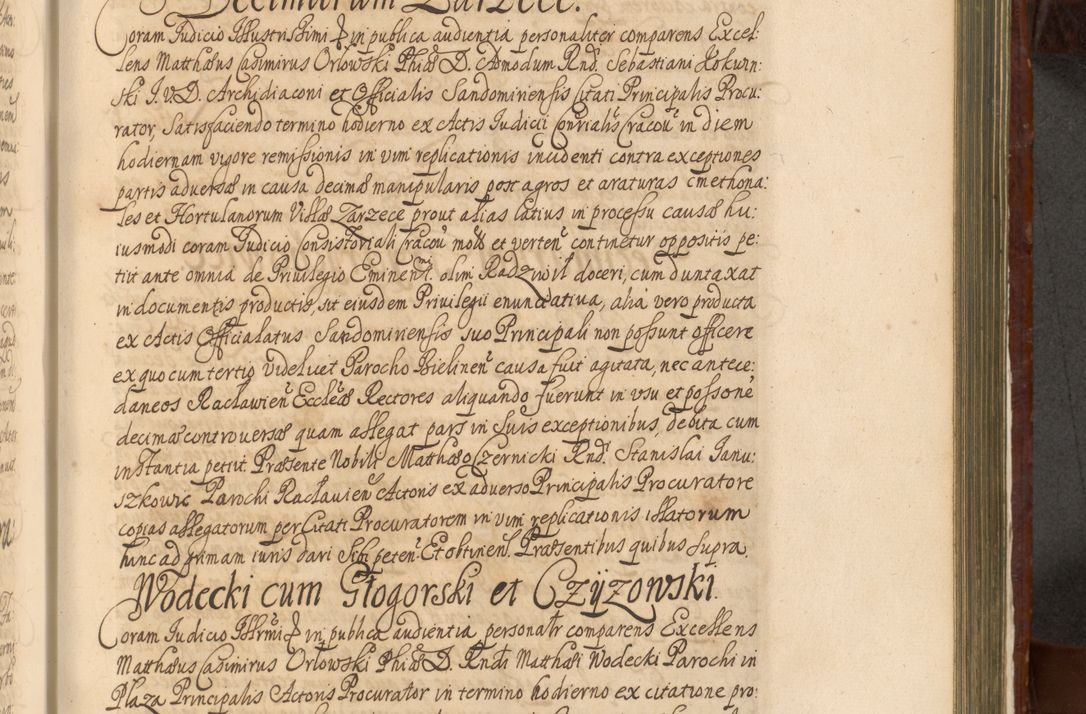 Decimarum Zarzece.
Coram Judicio Illustrissimi & in publica audientia personaliter comparens Excel:
lens Matthæus Casimirus Orłowski Phiæ D. Admodum Rnd. Sebastiani Kokwin:
ski J. V. D. Archidiaconi et Officialis Sandomiriensis Citati Principalis Procu:
rator, Satisfaciendo termino hodierno ex Actis Judicii Consrialis Cracou in diem
hodiernam vigore remissionis in vim replicationis incidenti contra exceptiones
partis adversæ in causa decimæ manipularis post agros et araturas cmethona:
les et Hortulanorum Villæ Zarzece prout alias latius in processu causæ hu:
iusmodi coram Judicio Consistoriali Cracou mot. et verten. continetur oppositis pe:
tiit ante omnia de Privilegio Eminenmi. olim Radziwił doceri, cum duntaxat
in documentis productis, sit eiusdem Privilegii enunciativa, alia vero producta
ex Actis Officialatus Sandomiriensis suo Principali non possunt officere
ex quo cum tertio videlicet Parocho Bielinen. causa fuit agitata, nec antece:
daneos Racławien. Eccleæ Rectores aliquando fuerunt in usu et possone
decimæ controversæ quam allegat pars in suis exceptionibus, debita cum
instantia petiit. Præsente Nobili Matthæo Czernicki Rnd. Stanislai Janu:
szkowic Parochi Racławien. Actoris ex adverso Principalis Procuratore
copias allegatorum per Citati Procuratorem in vim replicationis illatorum
hunc ad primam iuris dari sibi peten. Et obtinen. Præsentibus quibus supra.
Wodecki cum Głogorski et Czÿzowski.
Coram Judicio Illrmi & in publica audientia personalr comparens Excellens
Matthæus Casimirus Orłowski Phiæ D. Rndi Matthæi Wodecki Parochi in
Plaza Principalis Actoris Procurator in termino hodierno ex citatione pro: